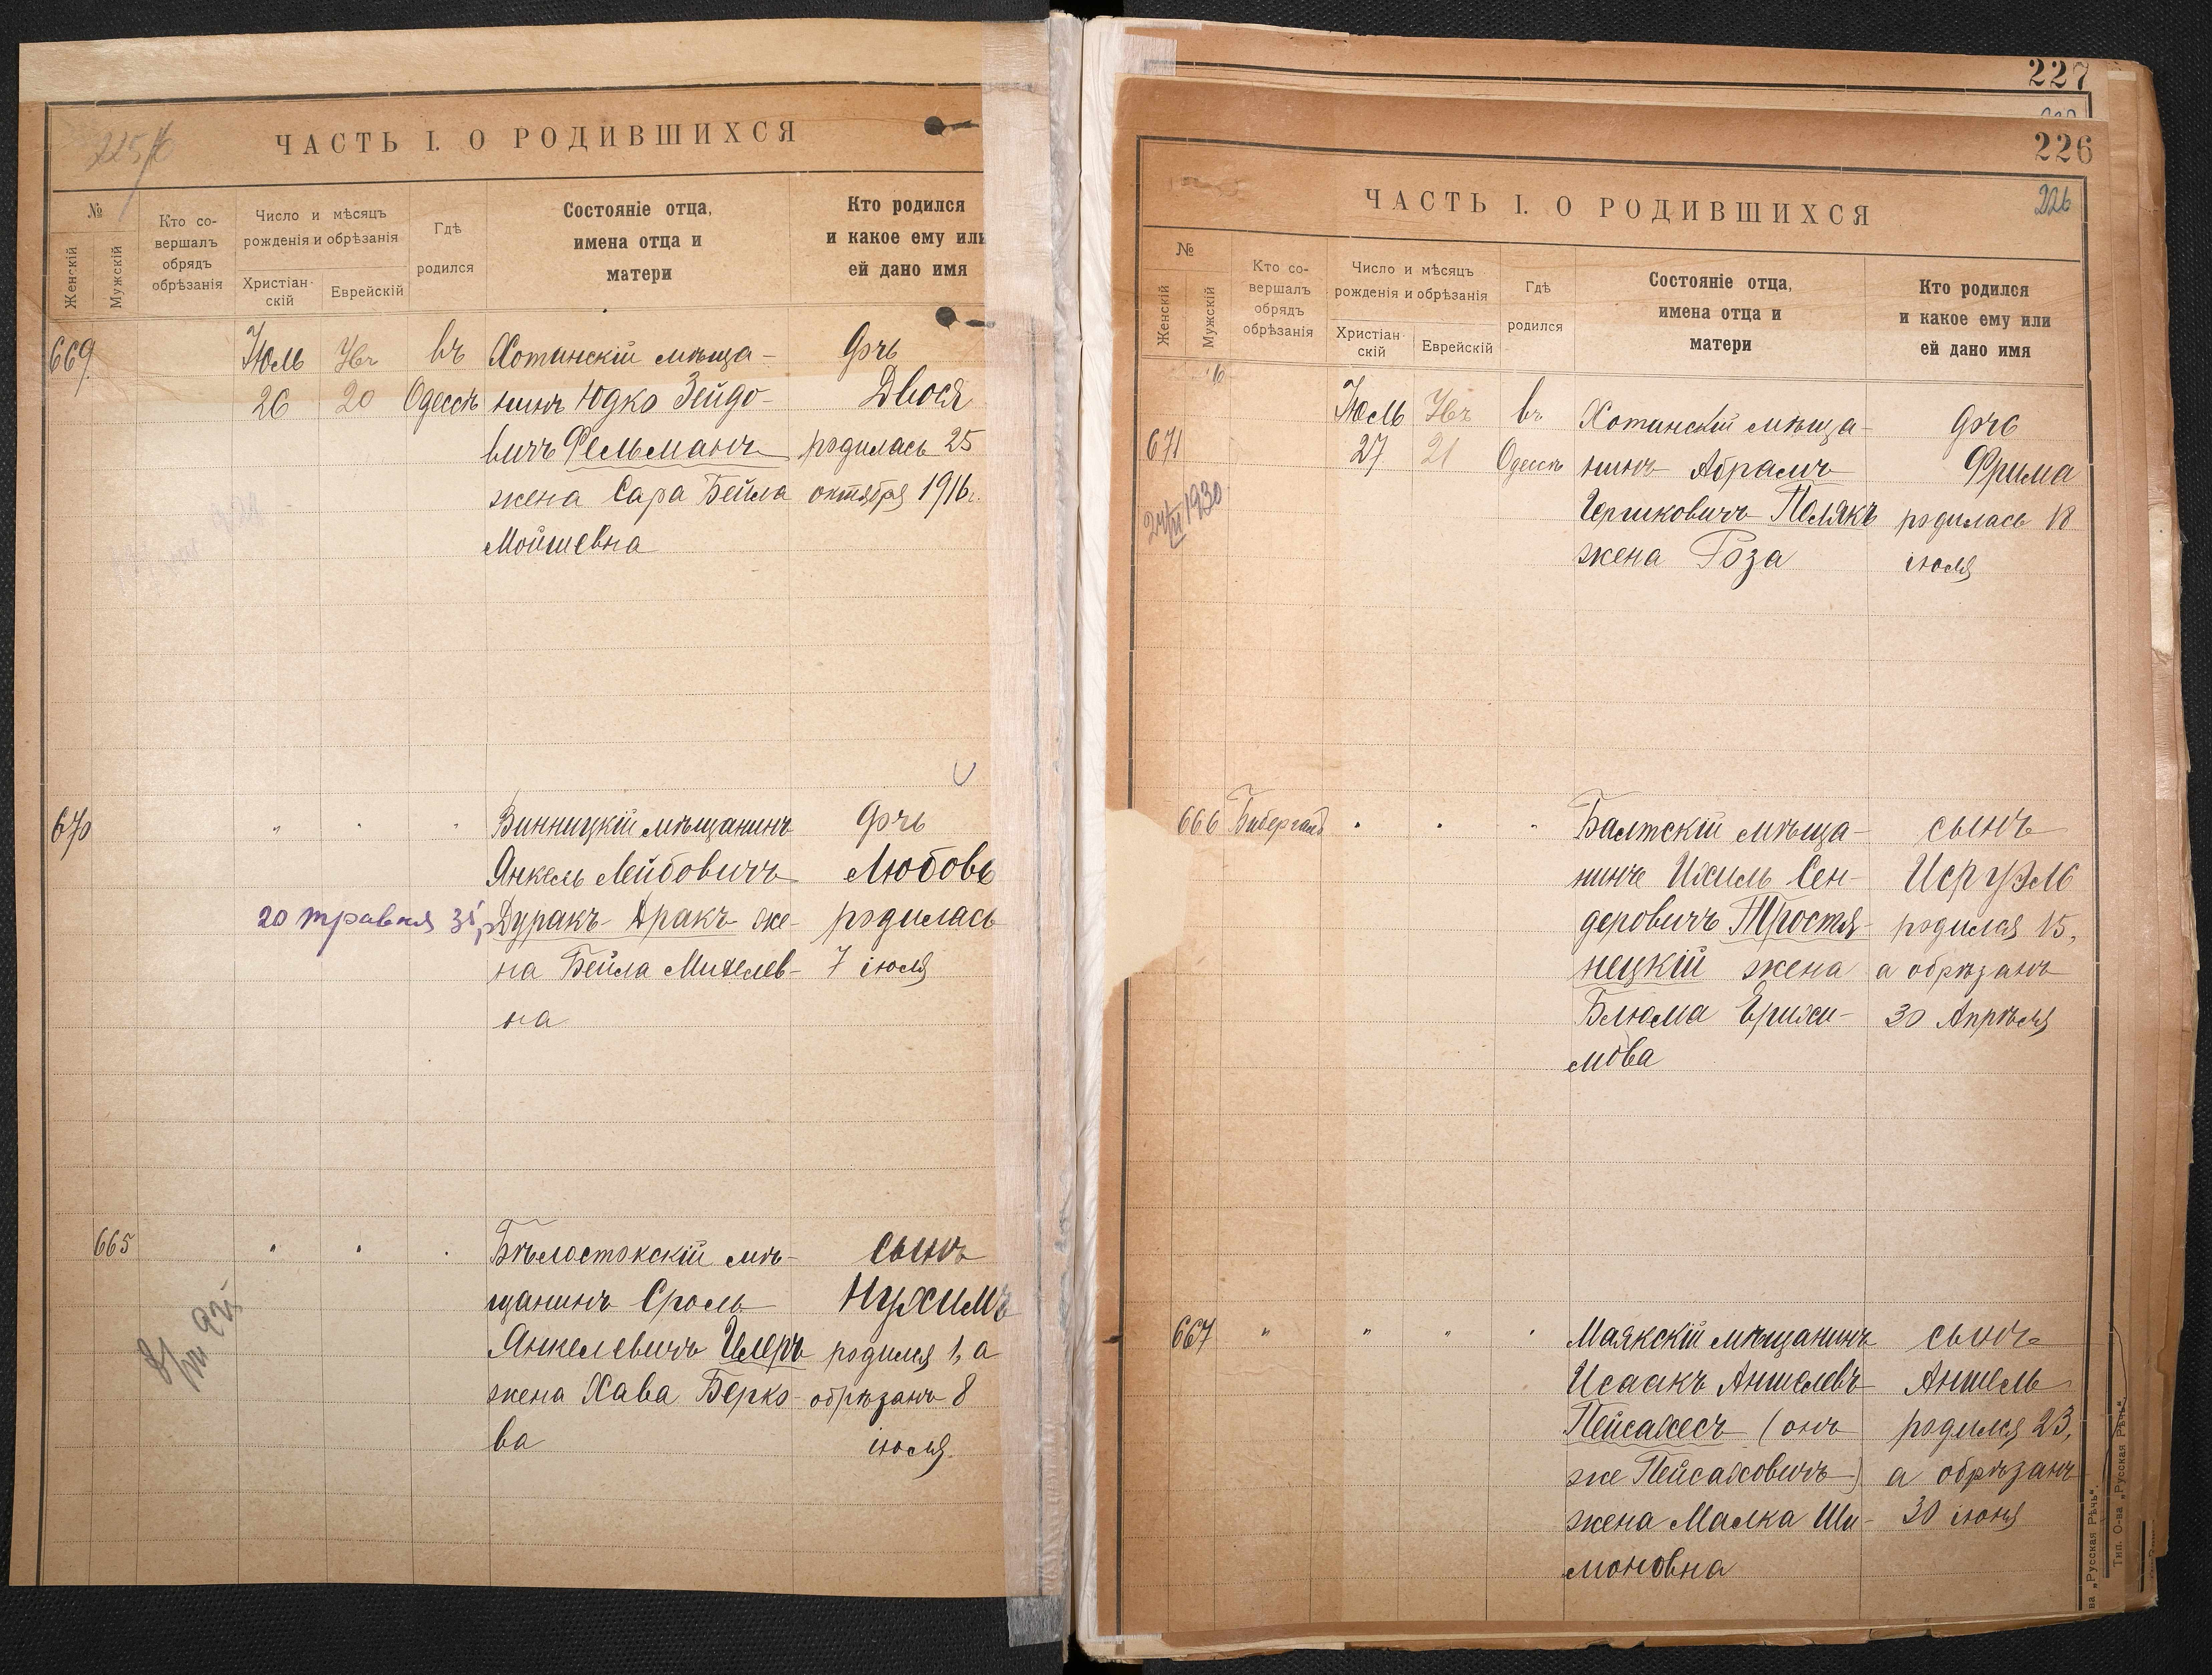 225
ЧАСТЬ I. О РОДИВШИХСЯ
№
Женскій
Мужскій
Кто со-
вершалъ
обрядъ
обрѣзанія
Число и мѣсяцъ
рожденія и обрѣзанія
Христіан-
скій
Еврейскій
Гдѣ
родился
Состояніе отца,
имена отца и
матери
Кто родился
и какое ему или
ей дано имя
669
Іюль
26
20
въ
Одессѣ
Хотинскій мѣща-
нинъ Юдко Зейдо-
вичъ Фельманъ
жена Сара Бейла
Мойшевна
дчь
Двося
родилась 25
октября 1916 г.
670
20 травня 31 р
Винницкій мѣщанинъ
Янкель Лейбовичъ
Дуракъ-Дракъ же-
на Бейла Михелев-
на
дчь
Любовь
родилась
7 іюля
665
Бѣлостокскій мѣ-
щанинъ Сроль
Янкелевичъ
жена Хава Берко-
ва
сынъ
Нухимъ
родился 1, а
обрѣзанъ 8
іюля.
227
226
226
ЧАСТЬ I. О РОДИВШИХСЯ
№
Женскій
Мужскій
Кто со-
вершалъ
обрядъ
обрѣзанія
Число и мѣсяцъ
рожденія и обрѣзанія
Христіан-
скій
Еврейскій
Гдѣ
родился
Состояніе отца,
имена отца и
матери
Кто родился
и какое ему или
ей дано имя
671
1930
Іюль
27
21
въ
Одессѣ
Хотинскій мѣща-
нинъ Абрамъ
Гершковичъ Полякъ
жена Роза
дчь
Фрима
родилась 18
іюля
666
Бибергалъ
Балтскій мѣща-
нинъ Ихиль Сен-
деровичъ Тростя-
нецкій жена
Блюма
мова
сынъ
Исруэль
родился 15,
а обрѣзанъ
30 Апрѣля
667
Маякскій мѣщанинъ
Исаакъ Аншелевъ
Пейсахесъ (онъ
же Пейсаховичъ)
жена Малка Ши-
моновна
сынъ
Аншель
родился 23,
а обрѣзанъ
30 іюня
ва „Русская Рѣчь“.
Тип. О-ва „Русская Рѣчь“.